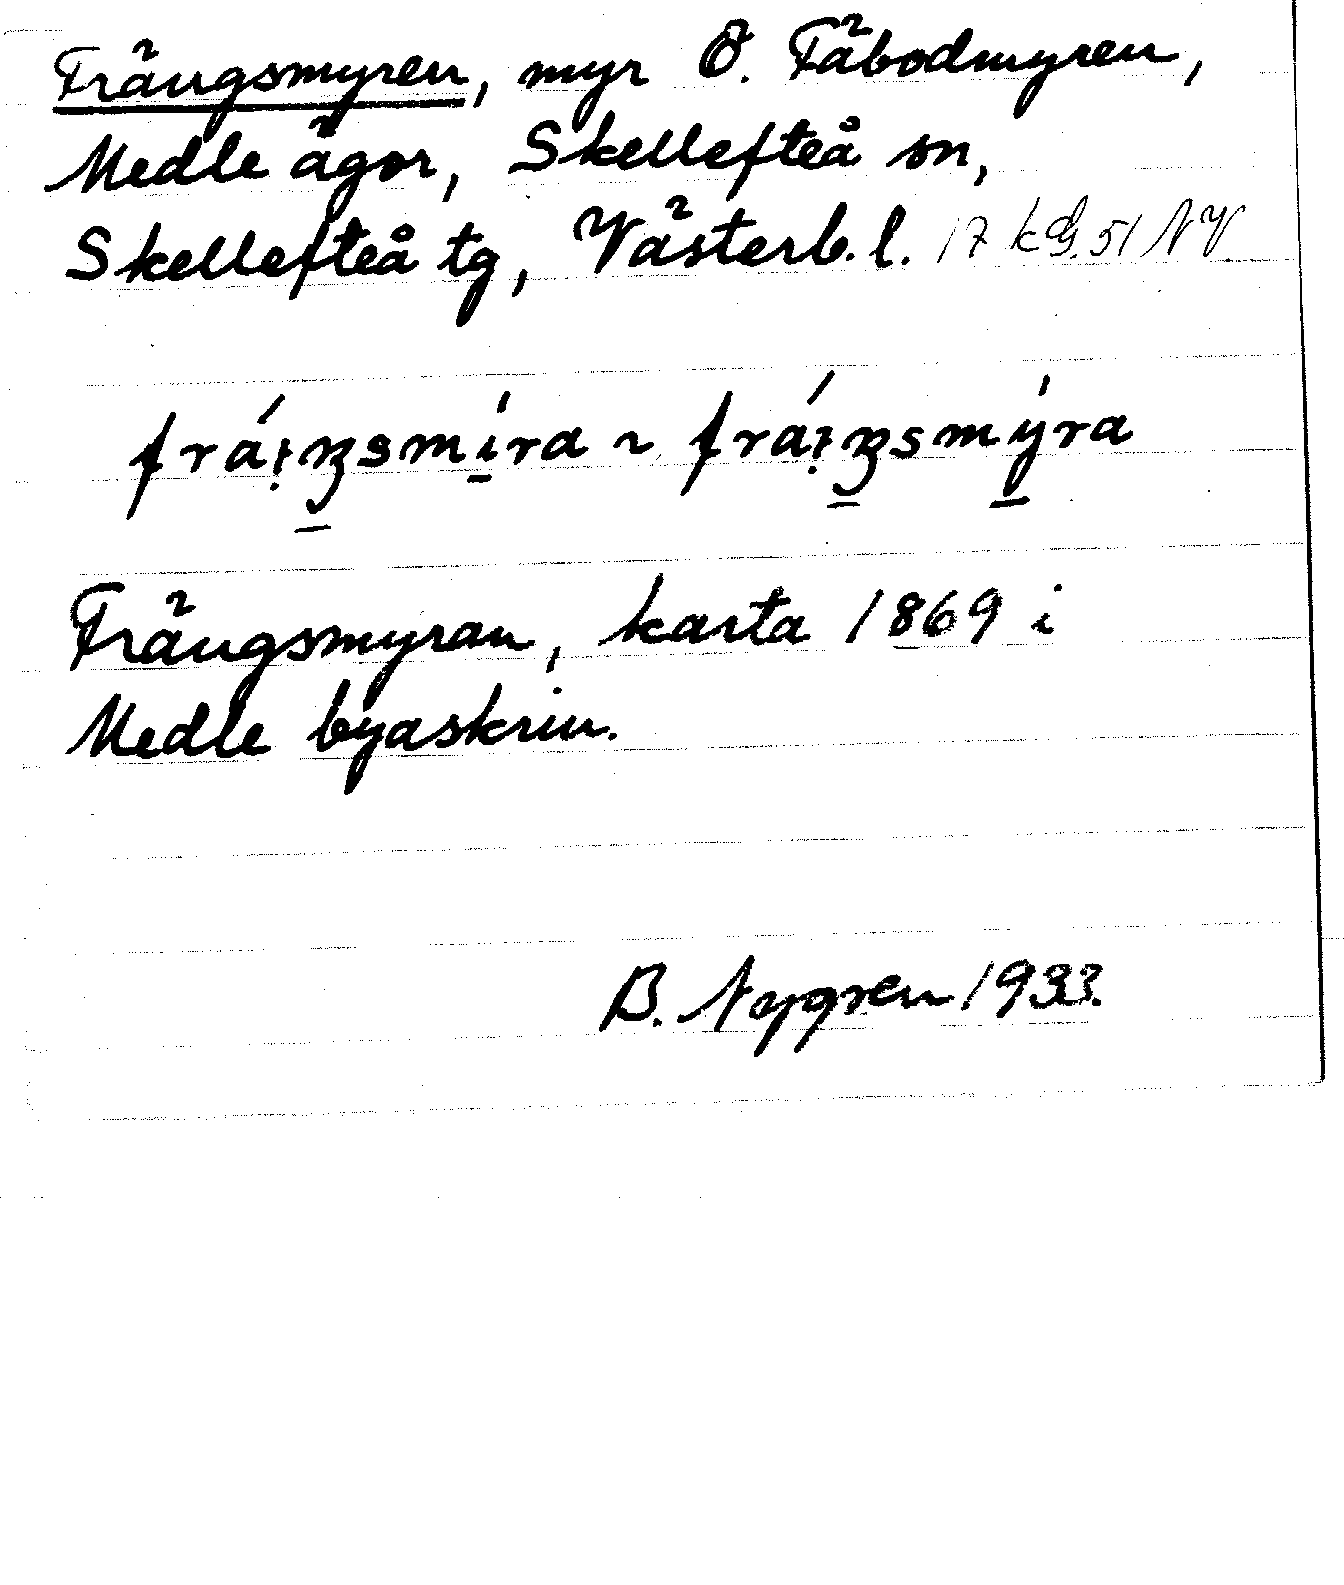 Frängsmyren, myr Ö. Fäbodmyren,
Medle ägor, Skellefteå sn,
Skellefteå tg, Västerb. l. 17 kdG. 51 NV
Frängsmyran, karta 1869 i
Medle byaskrin.
B. Nygren 1933.